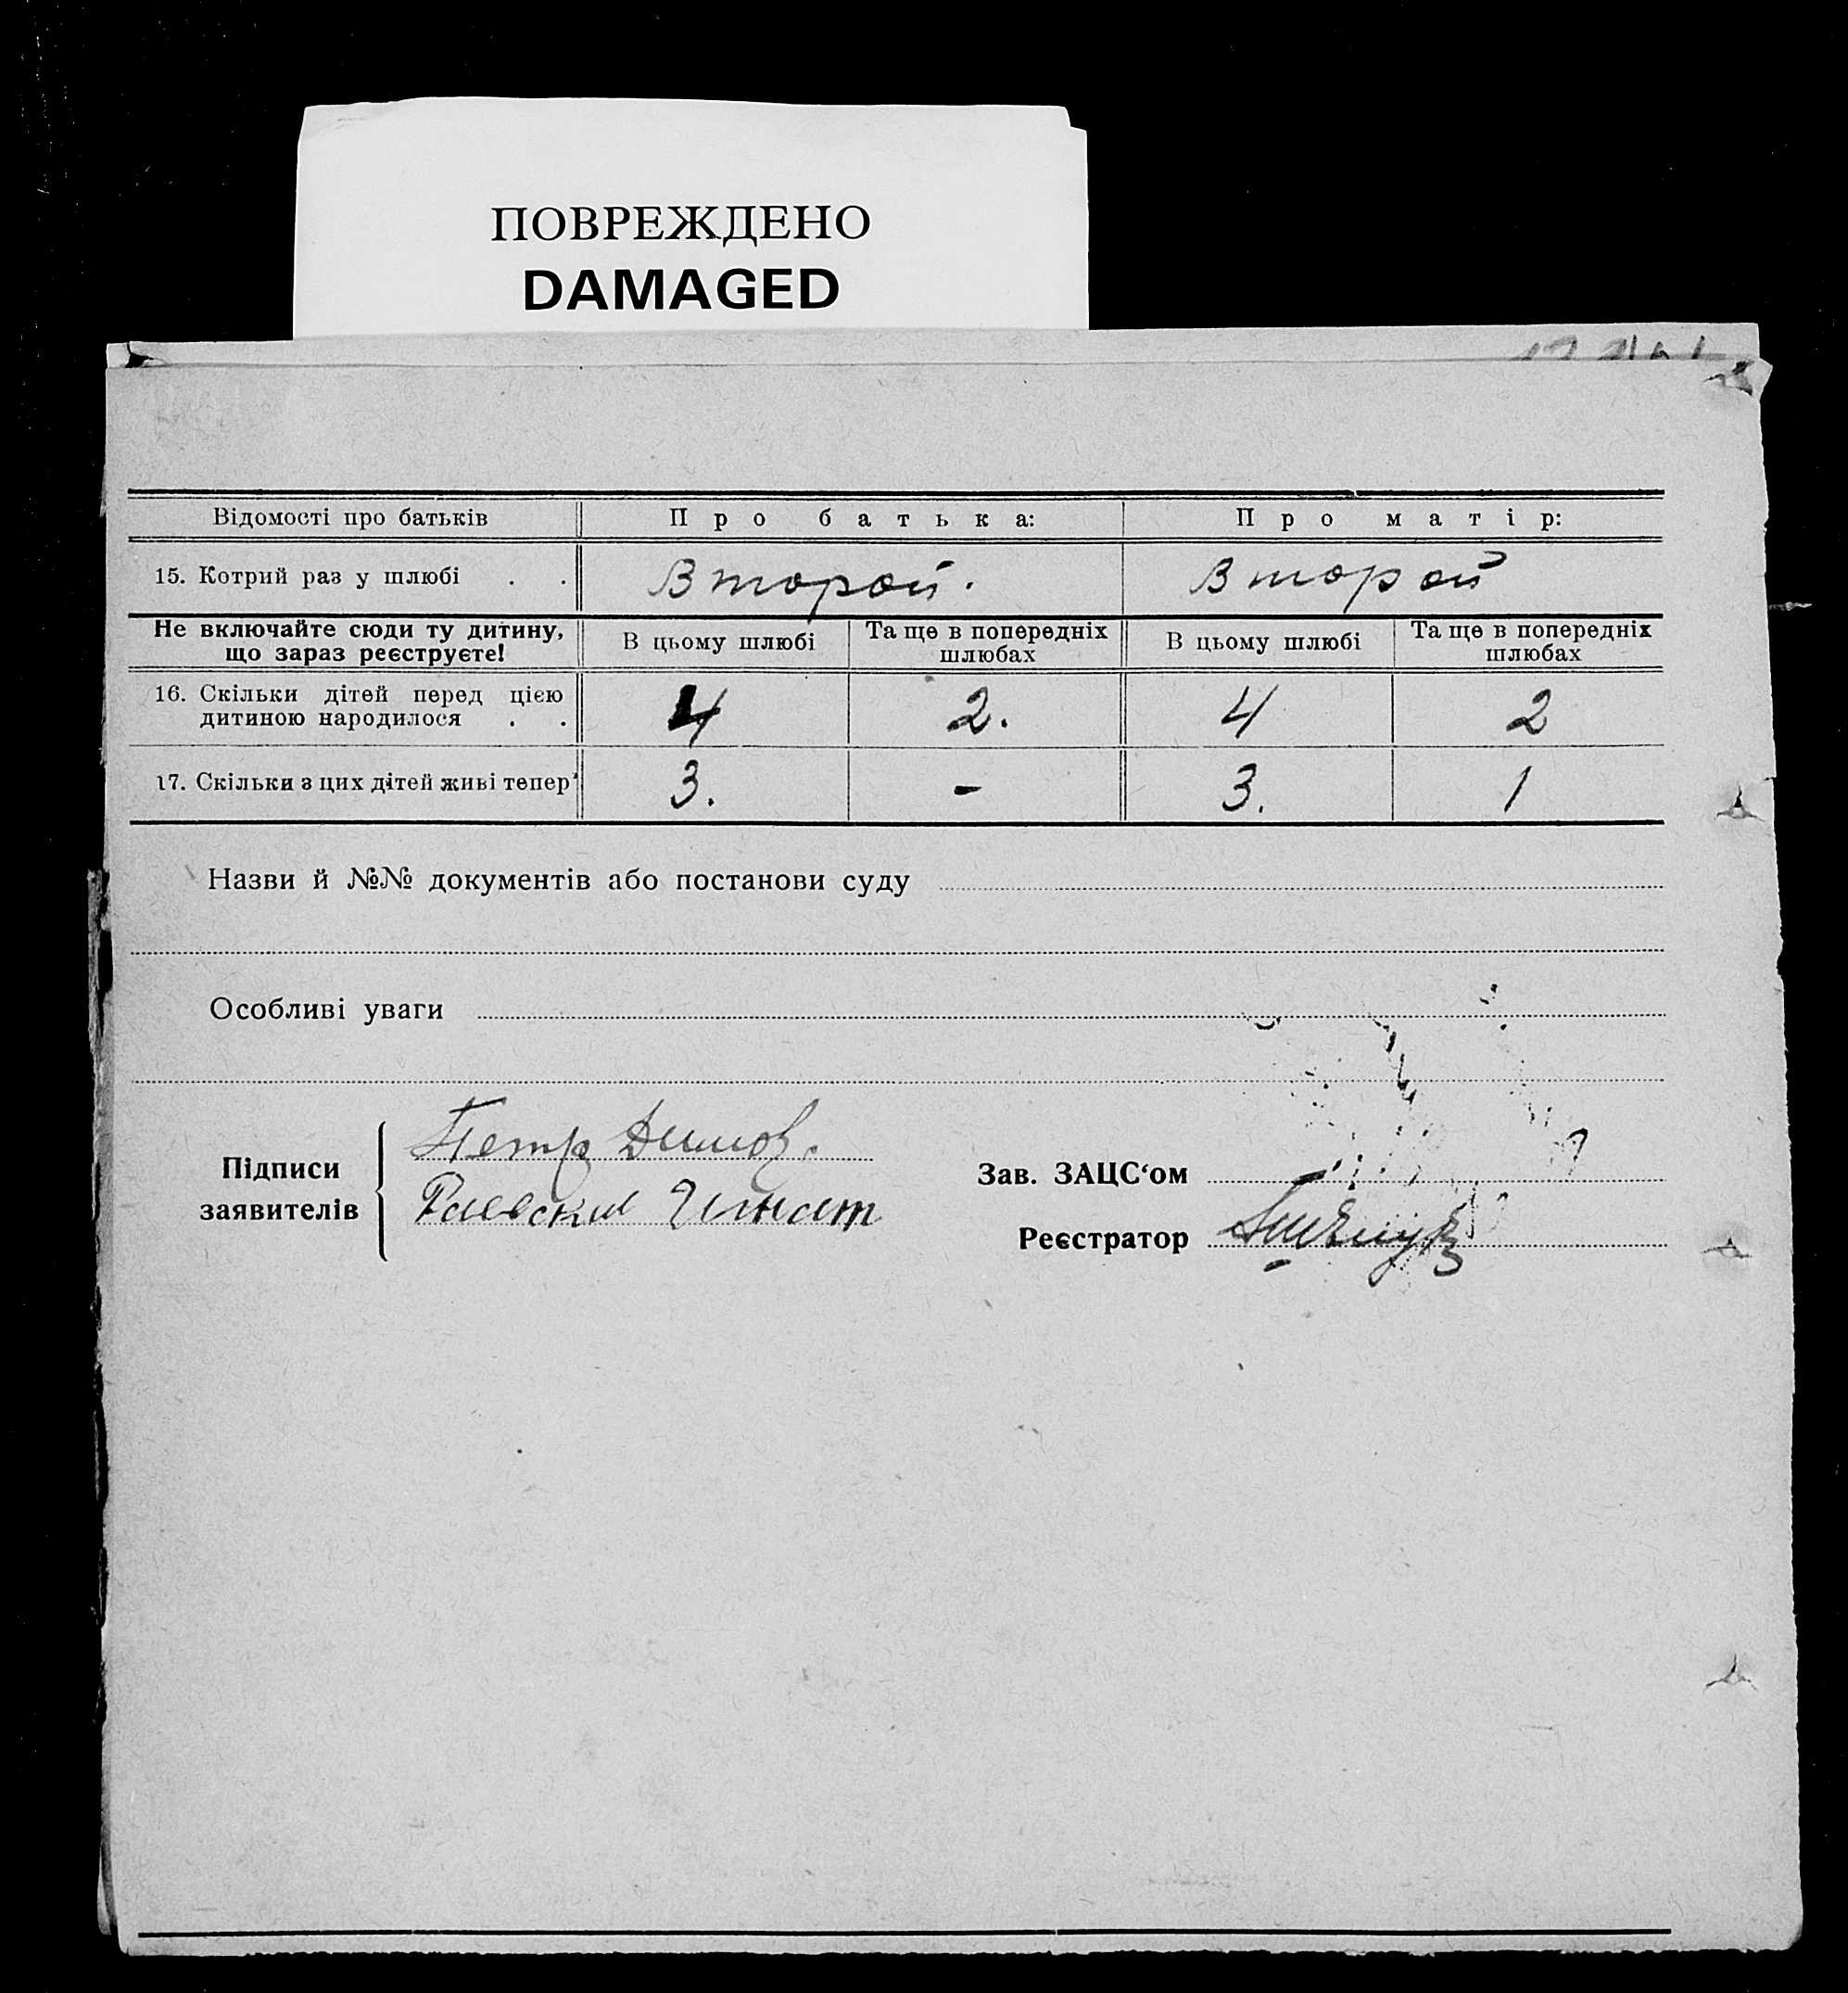 ПОВРЕЖДЕНО
DAMAGED
Відомості про батьків Про батька: Про матір:
15. Котрий раз у шлюбі . . Второй. Второй
Не включайте сюди ту дитину, що зараз реєструєте! В цьому шлюбі Та ще в попередніх шлюбах В цьому шлюбі Та ще в попередніх шлюбах
16. Скільки дітей перед цією дитиною народилося . . 4 2. 4 2
17. Скільки з цих дітей живі тепер 3. - 3. 1
Назви й №№ документів або постанови суду
Особливі уваги
Підписи заявителів
Петр
Раевский Игнат
Зав. ЗАЦС‘ом
Реєстратор